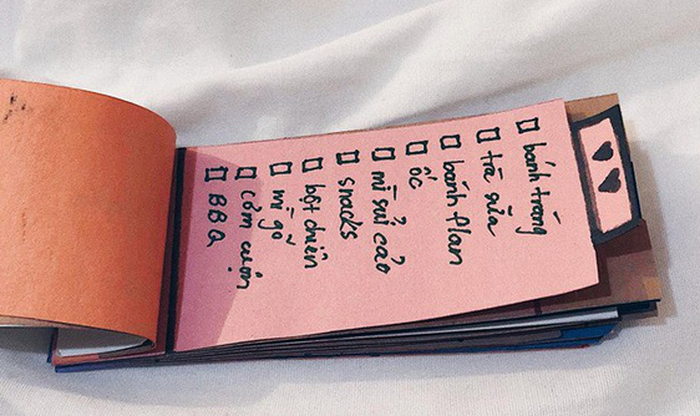 bánh tráng
trà sữa
bánh plan
ốc
mì sủi cảo
snacks
bột chiên
mì gõ
cơm cuộn
BBQ